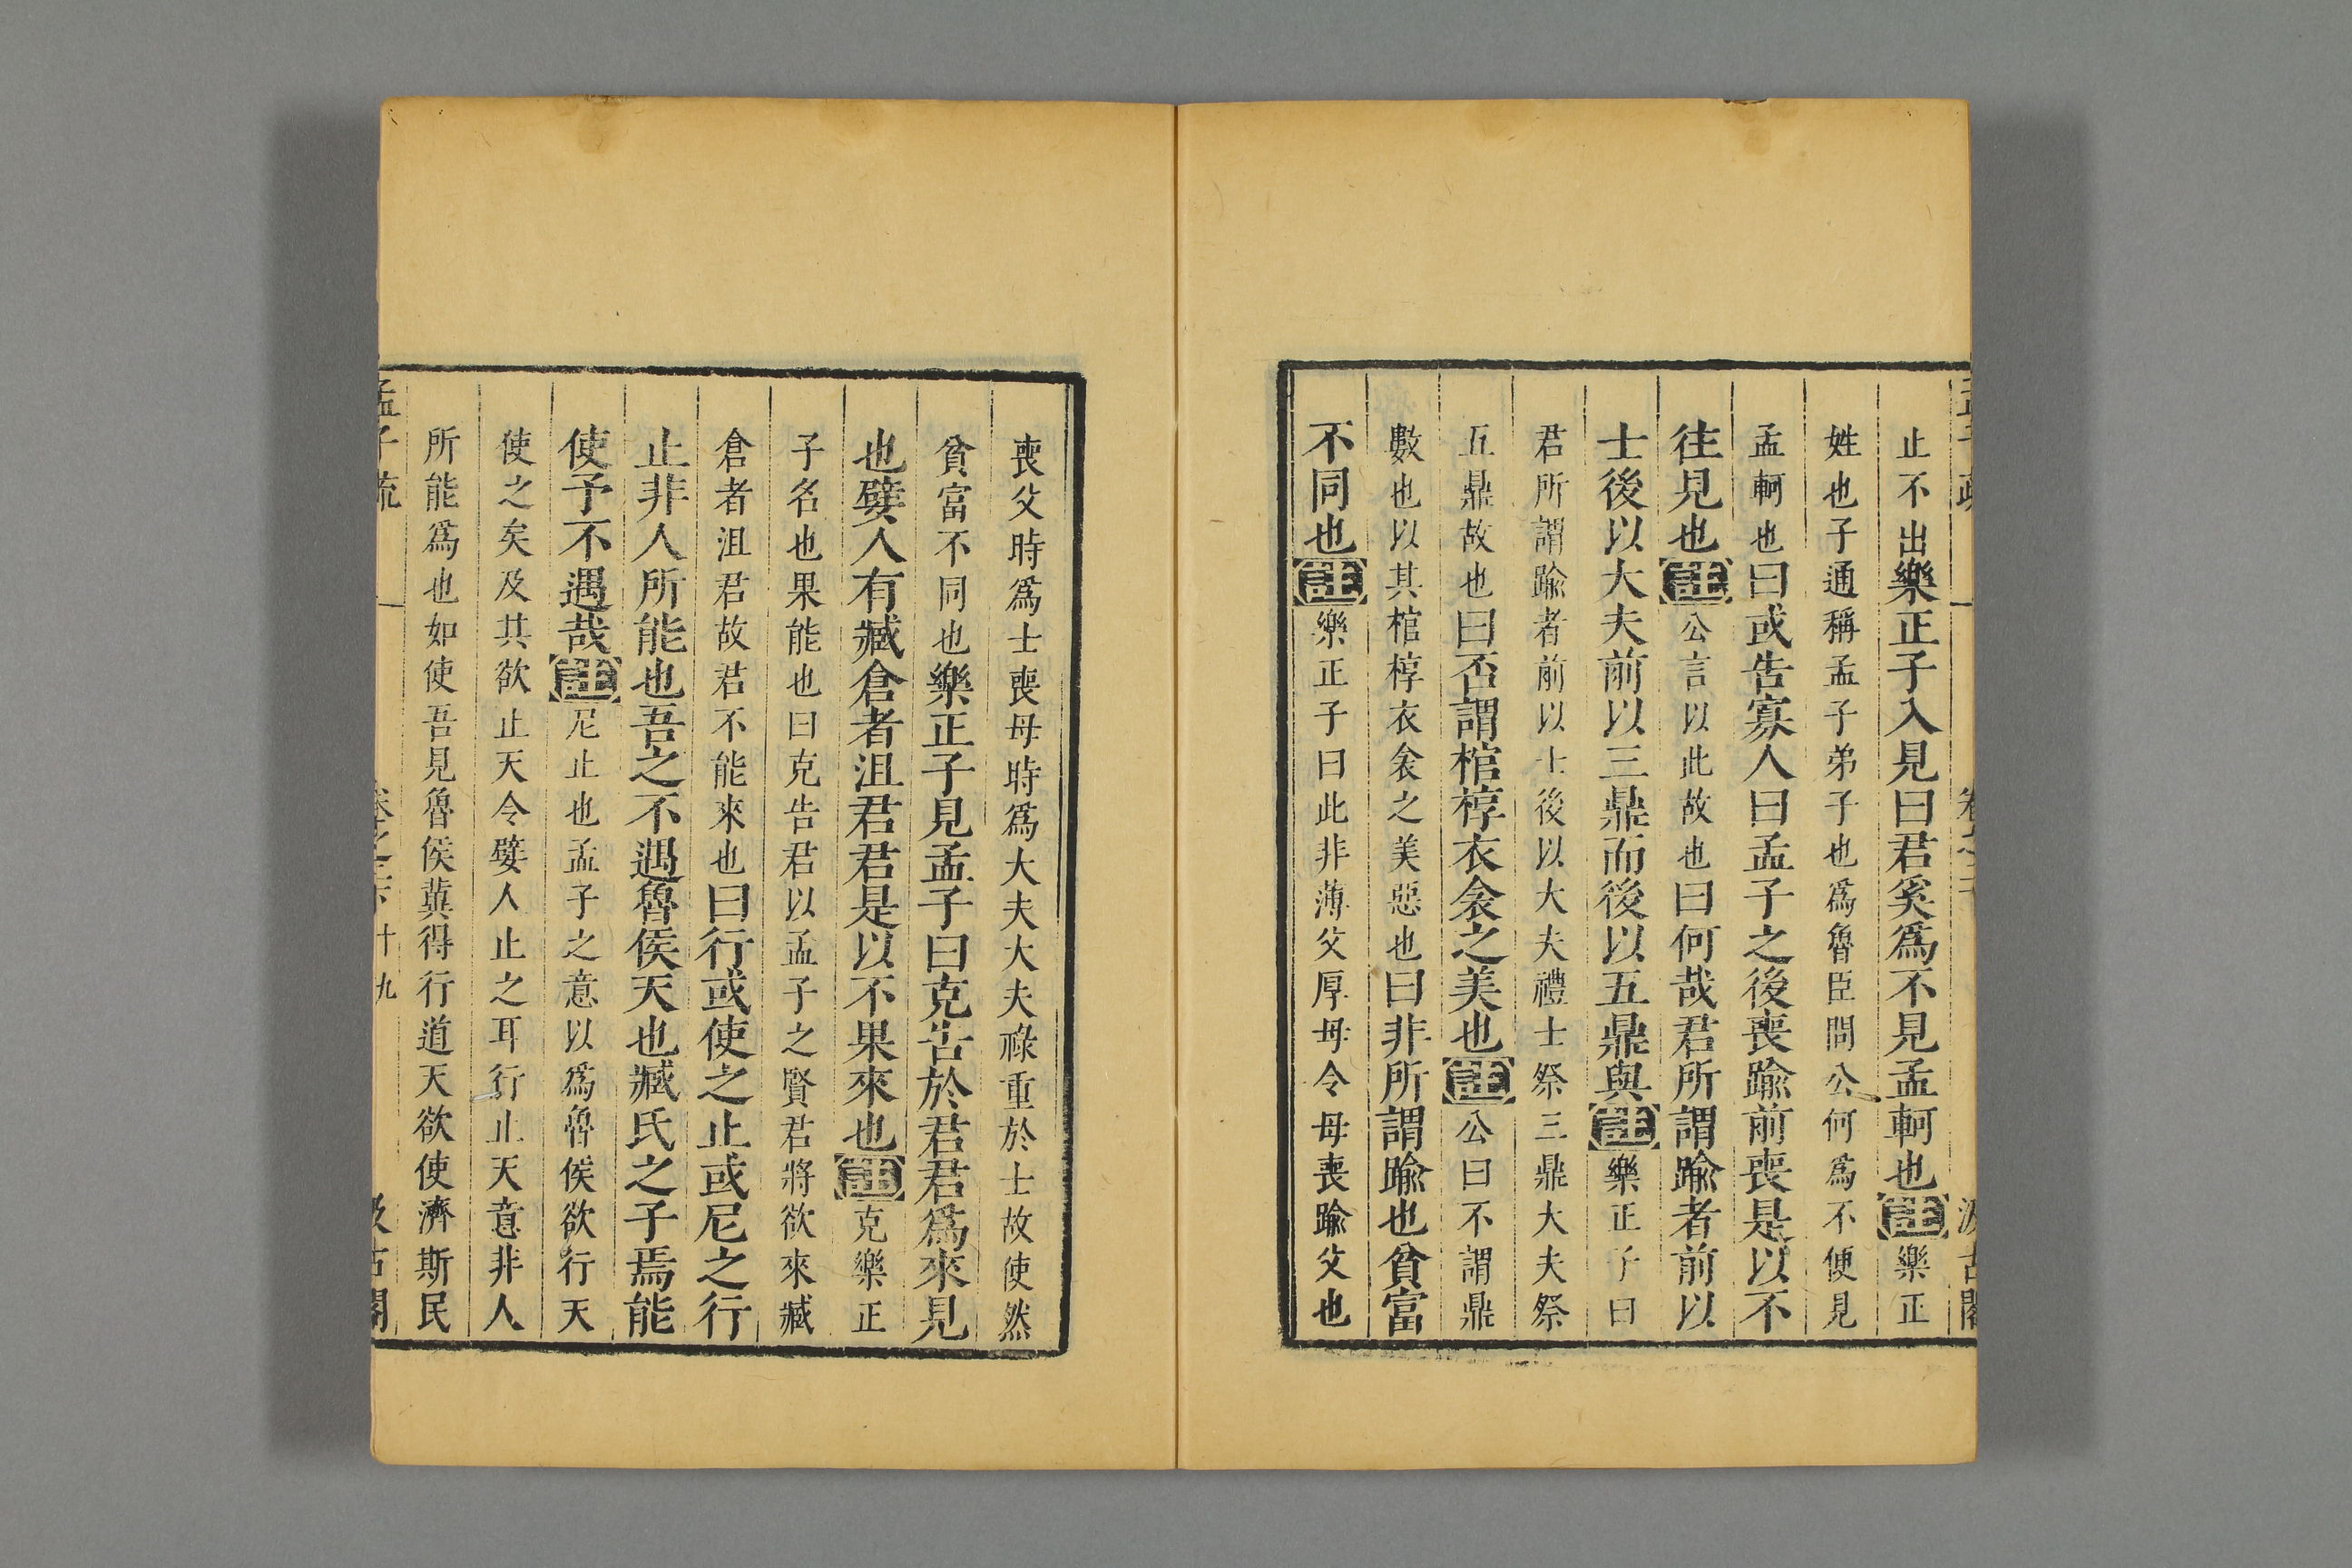 止不出樂正子入見曰君奚爲不見孟軻也註樂正
姓也子通稱孟子弟子也爲魯臣問公何爲不便見
孟軻也曰或告寡人曰孟子之後喪踰前喪是以不
往見也註公言以此故也曰何哉君所謂踰者前以
士後以大夫前以三鼎而後以五鼎與註樂正子曰
君所謂踰者前以士後以大夫禮士祭三鼎大夫祭
五鼎故也曰否謂棺椁衣衾之美也註公曰不謂鼎
數也以其棺椁衣衾之美惡也曰非所謂踰也貧富
不同也註樂正子曰此非薄父厚母令母喪踰父也
喪父時爲士喪母時爲大夫大夫祿重於士故使然
貧富不同也樂正子見孟子曰克告於君君爲來見
也嬖人有臧倉者沮君君是以不果來也註克樂正
子名也果能也曰克告君以孟子之賢君將欲來臧
倉者沮君故君不能來也曰行或使之止或尼之行
止非人所能也吾之不遇魯侯天也臧氏之子焉能
使予不遇哉註尼止也孟子之意以爲魯侯欲行天
使之矣及其欲止天令嬖人止之耳行止天意非人
所能爲也如使吾見魯侯冀得行道天欲使濟斯民
孟子疏 卷之二下 十九 汲古閣